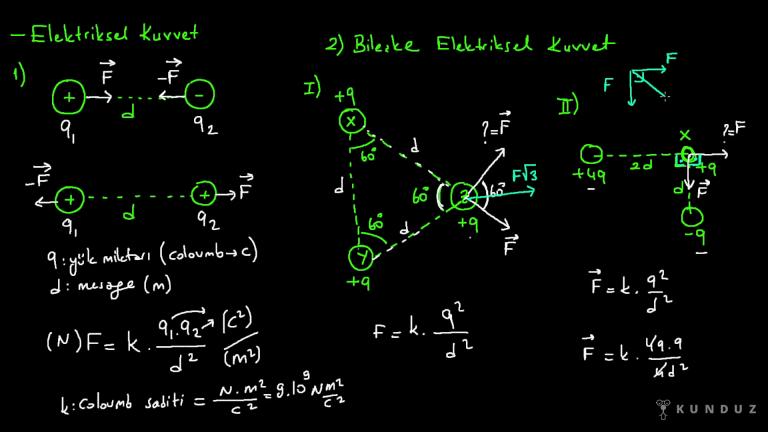 – Elektriksel Kuvvet
1)
F
-F
+
-
d
q1
q2
-F
F
+
+
d
q1
q2
q: yük miktarı (coloumb → c)
d: mesafe (m)
(N) F = k . q1.q2 / d² → (c²) / (m²)
k: coloumb sabiti = N.m² / c² = 9.10⁹ Nm² / c²
2) Bileşke Elektriksel Kuvvet
I)
+q
X
60°
d
?=F
F√3
d
60°
Z
60°
+q
F
60°
d
Y
+q
F = k . q² / d²
II)
F
F
X
?=F
2d
+4q
+q
d
F
-q
F = k . q² / d²
F = k . 4q.q / 4d²
KUNDUZ